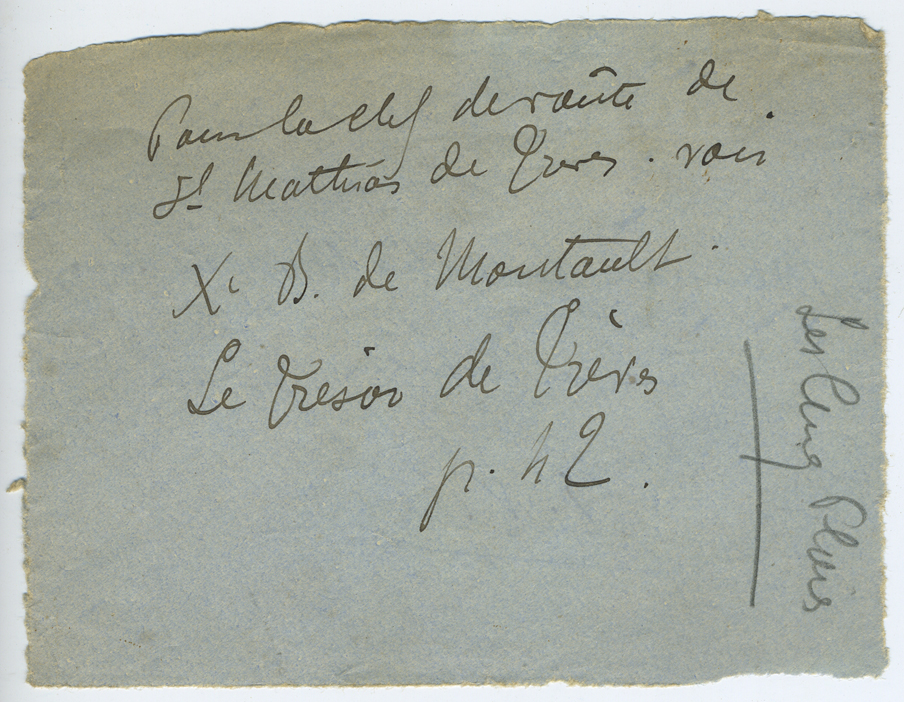 Pour la clef de voûte de
St Mathias de Treves. voir
X. B. de Montault.
Le trésor de Trèves
p. 42.
Les Cinq Plaies